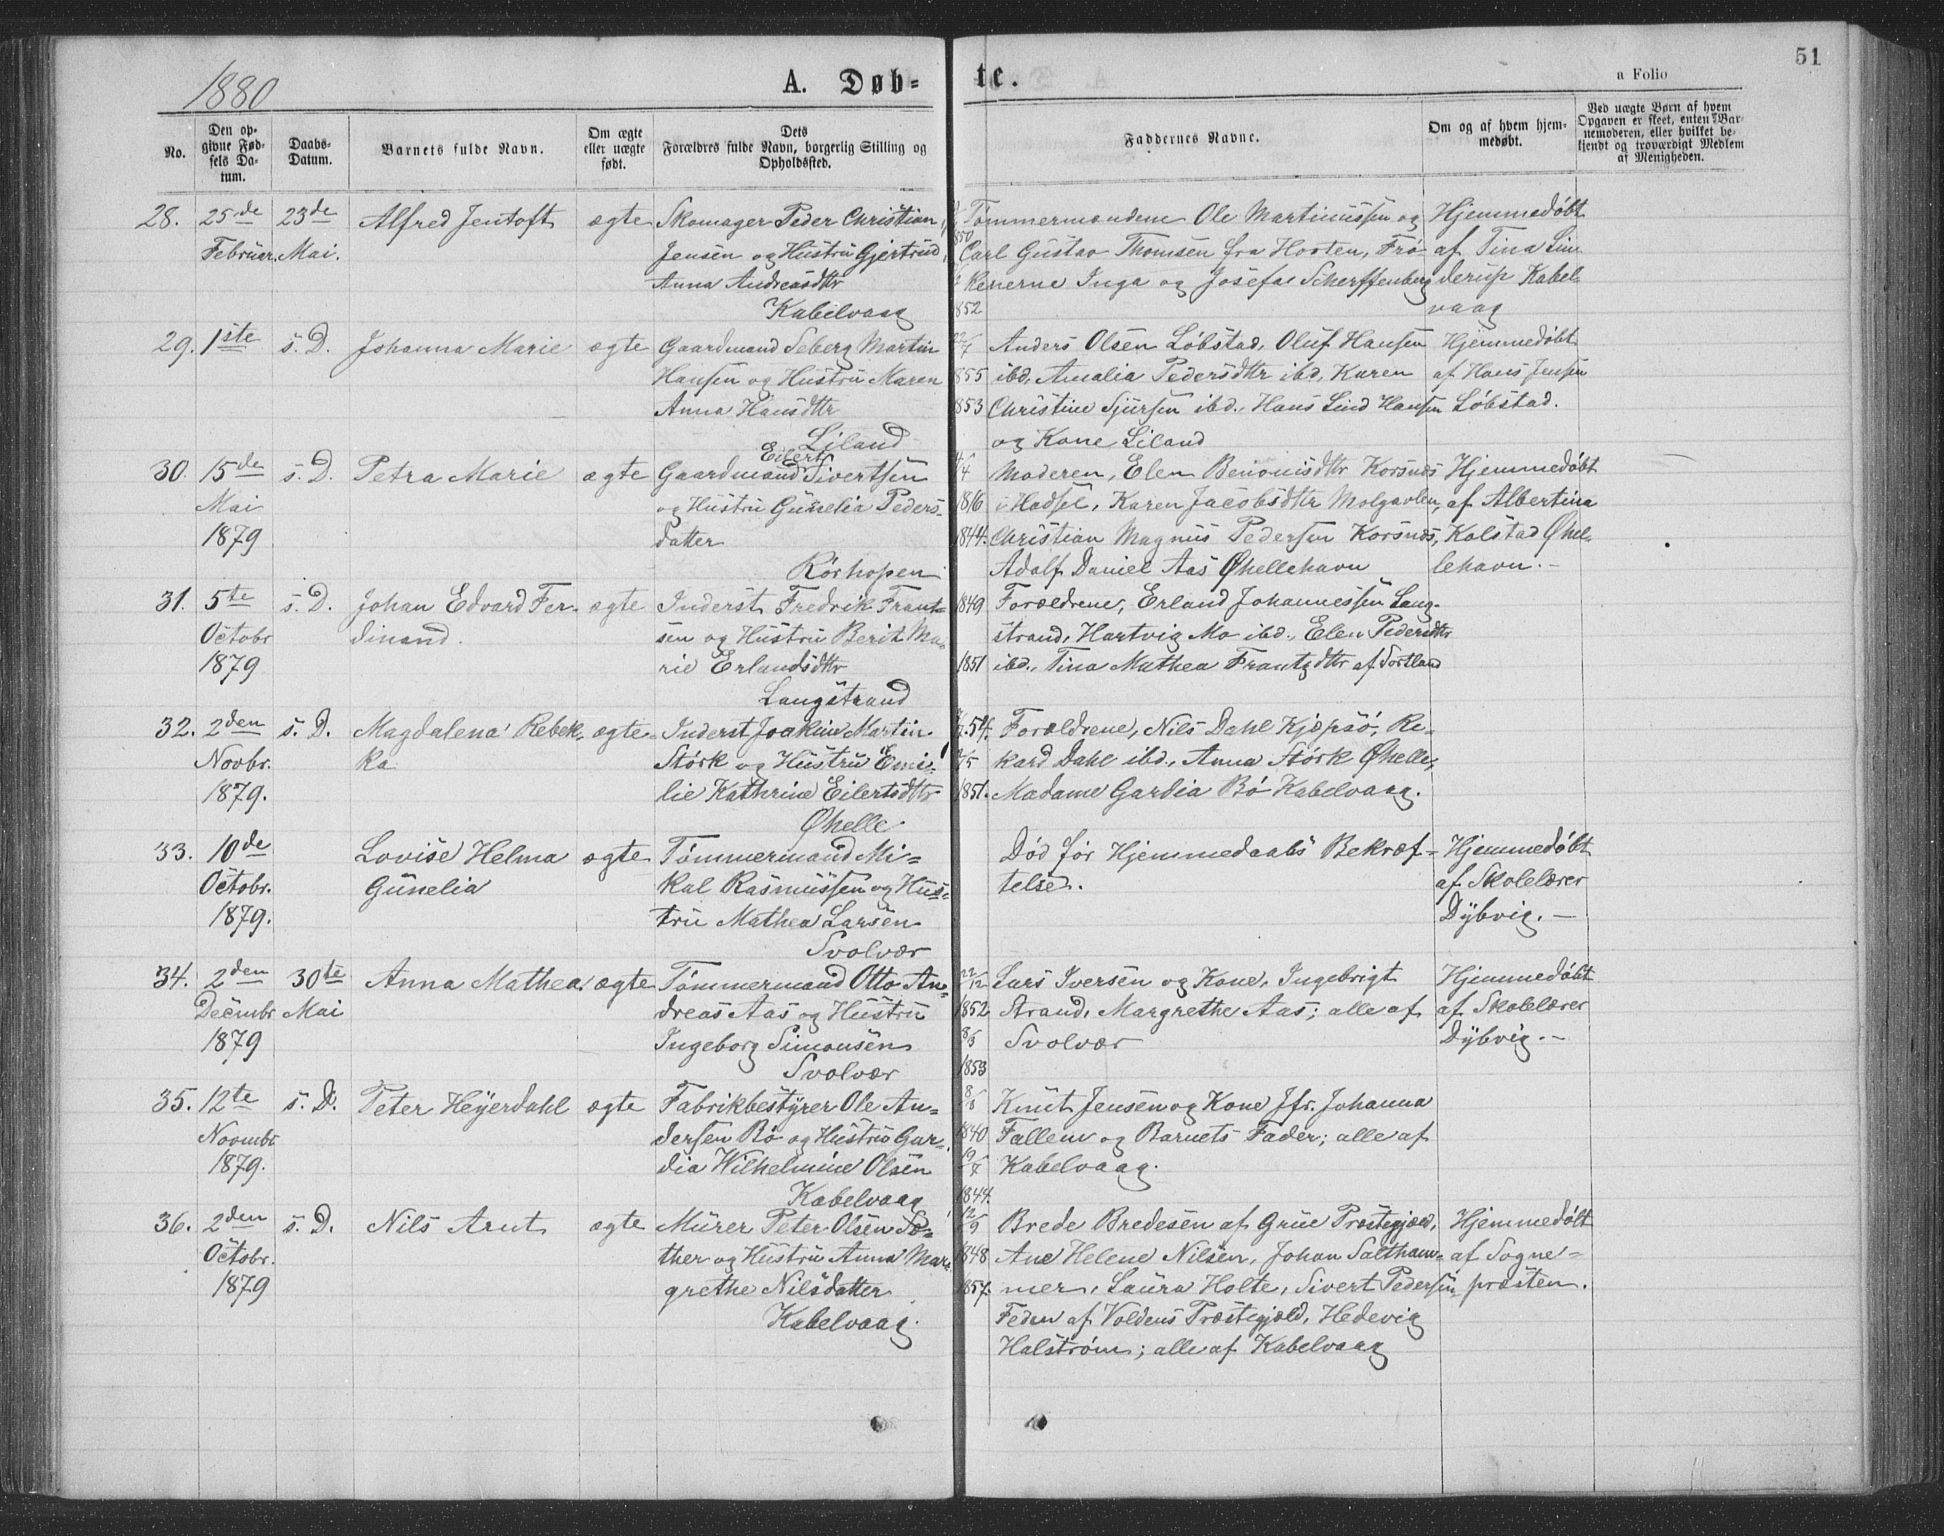 1880
A. Døb-
te.
a Folio
51
No.
Den op-
givne Fød-
sels Da-
tum.
Daabs-
Datum.
Barnets fulde Navn.
Om ægte
eller uægte
født.
Dets
Forældres fulde Navn, borgerlig Stilling og
Opholdssted.
Faddernes Navne.
Om og af hvem hjem-
medøbt.
Ved uægte Børn af hvem
Opgaven er skeet, enten Bar-
nemoderen, eller hvilket be-
kjendt og troværdigt Medlem
af Menigheden.
28. 25de 23de Alfred Jentoft ægte Skomager Peder Christian
Februar. Mai. Jensen og Hustru Gjertrud
Anna Andreasdtr
Kabelvaag
Tømmermændene Ole Martinussen og
850 Carl Gustav Thomsen fra Horten, Frø-
kenerne Inga og Josefa Scherffenberg
852
Hjemmedøbt
af Tina Lin-
derup Kabel-
vaag
29. 1ste s. D. Johanna Marie ægte Gaardmand Seberg Martin
Hansen og Hustru Maren
Anna Hansdtr
Liland
22/7 Anders Olsen Løbstad, Oluf Hansen
855 ibd, Amalia Pedersdtr ibd, Karen
853 Christine Sjursen ibd., Hans Lind Hansen
og Kone Liland
Hjemmedøbt
af Hans Jensen
Løbstad.
30. 15de s. D. Petra Marie ægte Gaardmand Eilert Sivertsen
Mai og Hustru Gunelia Peders-
1879 datter
Rørhopen
Moderen, Elen Benonisdtr Korsnæs
1816 i Hadsel, Karen Jacobsdtr Molgavlen,
1844. Christian Magnus Pedersen Korsnæs,
Adolf Daniel Aas Øhellehavn
Hjemmedøbt
af Albertina
Kolstad Øhel-
lehavn.-
31. 5te s. D. Johan Edvard Fer- ægte Inderst Fredrik Frant-
Octobr dinand. sen og Hustru Berit Ma-
1879 rie Erlandsdtr
Langstrand
1849 Forældrene, Erland Johannessen Lang-
strand, Hartvig Mo ibd., Elen Pedersdtr
1851 ibd., Tina Mathea Frantzdtr af Sortland
32. 2den s. D. Magdalena Rebek- ægte Inderst Joakim Martin
Novbr. ka Størk og Hustru Emi-
1879. lie Kathrine Eilertsdtr
Øhelle
54. Forældrene, Nils Dahl Kjæpsø, Re-
kard Dahl ibd., Anna Størk Øhelle,
1851. Madame Gardia Bø Kabelvaag.
33. 10de Lovise Helma ægte Tømmermand Mi-
Octobr. Gunelia kal Rasmussen og Hus-
1879. tru Mathea Larsen
Svolvær
Død før Hjemmedaabs Bekræf-
telse.
Hjemmedøbt
af Skolelærer
Dybvig.-
34. 2den 30te Anna Mathea ægte Tømmermand Otto An-
Decmbr Mai dreas Aas og Hustru
1879 Ingeborg Simonsen
Svolvær
22/12 Lars Iversen og Kone, Ingebrigt
1852 Strand, Margrethe Aas; alle af
Svolvær
1853
Hjemmedøbt
af Skolelærer
Dybvig.-
35. 12te s. D. Peter Heyerdahl ægte Fabrikbestyrer Ole An-
Novmbr. dersen Bø og Hustru Gar-
1879. dia Wilhelmine Olsen
Kabelvaag
Knut Jensen og Kone Jfr. Johanna
1840 Fallem og Barnets Fader; alle af
Kabelvaag.
1844.
36. 2den s. D. Nils Arnt ægte Murer Peter Olsen Sæ-
Octobr. ther og Hustru Anna Mar-
1879 grethe Nilsdatter
Kabelvaag.
12/9 Brede Bredesen af Grue Præstegjæld,
1848 Ane Helene Nilsen, Johan Saltham-
1857. mer, Laura Holte, Sivert Pedersen
Feden af Voldens Præstegjæld, Hedevig
Halstrøm; alle af Kabelvaag
Hjemmedøbt
af Sogne-
præsten.